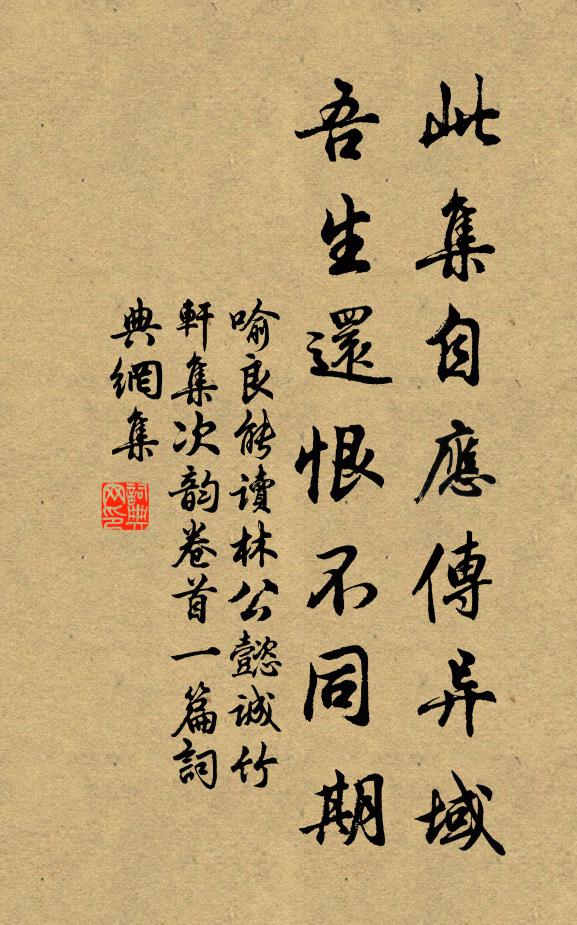 此集自應傳异域
吾生還恨不同期
喻良能讀林公懿誠竹
軒集次韵卷首一篇詞
典網集
詞典
网印